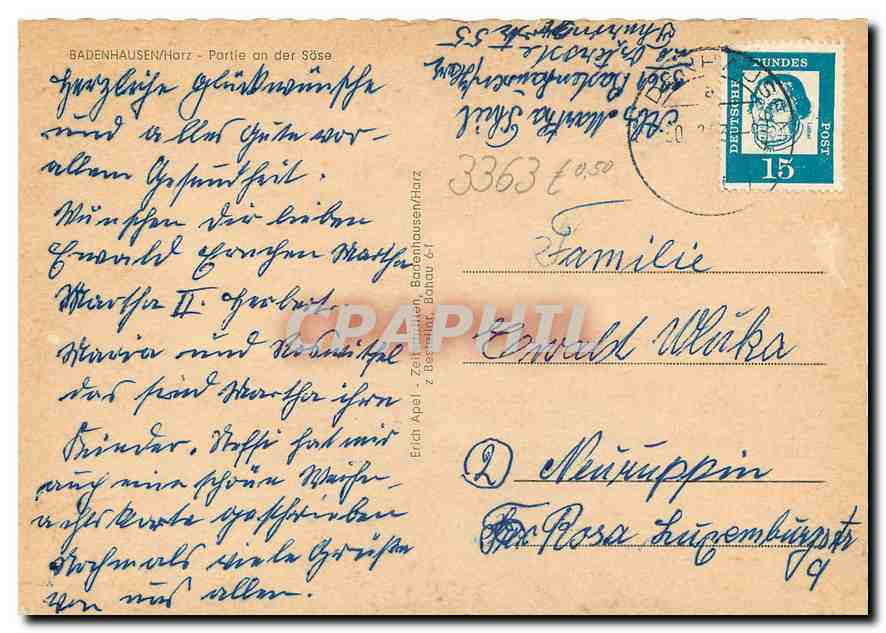 BADENHAUSEN/Harz - Partie an der Söse
Herzliche Glückwünsche
und alles Gute vor-
allem Gesundheit.
Wünschen dir lieben
Ewald Ernchen Martha
Martha II. Herbert.
Maria und
das sind Martha ihre
Kinder. hat mir
auch eine schöne Weihn-
achtskarte geschrieben
Nochmals viele Grüße
von uns allen.
Erich Apel - Badenhausen/Harz
z Bestellnr. Bahau 6-f
Abs Martha
3363 Badenhausen/Harz
55
3363 £0,50
DEUTSCHE BUNDESPOST
Luther
15
Familie
Ewald Wluka
(2) Neuruppin
Rosa Luxemburgstr
9
CPAPHIL